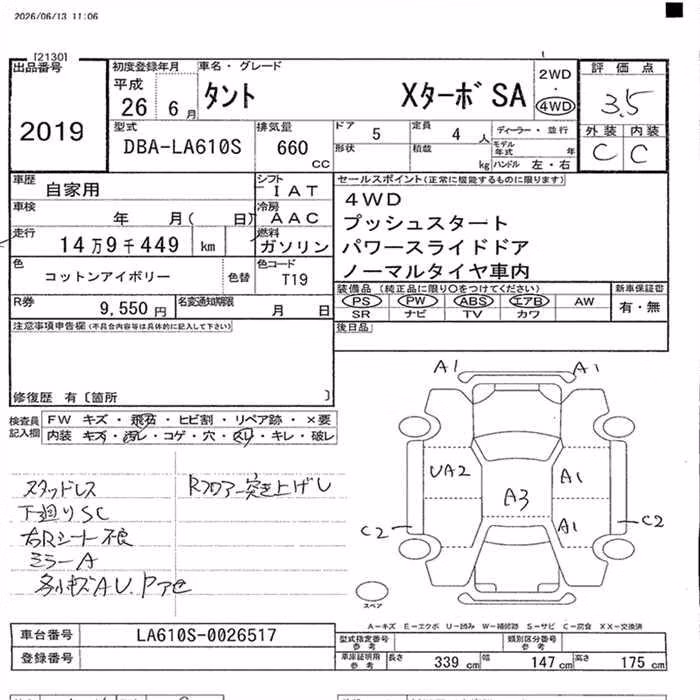 2026/06/13 11:06
[2130]
出品番号
2019
初度登録年月
平成
26 6月
車名・グレード
タント XターボSA
2WD
・
4WD
評価点
3.5
外装 内装
C C
型式
DBA-LA610S
排気量
660
CC
ドア 5
定員 4 人
ディーラー・並行
形状
積載
kg
モデル年式 年
ハンドル 左・右
車歴
自家用
シフト
IAT
車検
年 月( 日)
冷房
AAC
走行
14万9千449 km
燃料
ガソリン
色
コットンアイボリー
色替
色コード
T19
R券
9,550円
名変通知期限
月 日
セールスポイント(正常に機能するものに限ります)
4WD
プッシュスタート
パワースライドドア
ノーマルタイヤ車内
装備品 (純正品に限り○をつけてください)
PS PW ABS エアB AW
SR ナビ TV カワ
新車保証書
有・無
後日品
注意事項申告欄(不具合内容等は具体的に記入して下さい)
修復歴 有〔箇所 〕
検査員記入欄
FW キズ・飛石・ヒビ割・リペア跡・×要
内装 キズ・汚レ・コゲ・穴・スレ・キレ・破レ
スタッドレス
下廻りSC
右Rシート不良
ミラーA
各小キズAU.Pアセ
Rフロアー突き上げし
A1 A1
UA2 A1
A3
A1
C2 C2
スペア
A-キズ E-エクボ U-凹み W-補修跡 S-サビ C-腐食 XX-交換済
車台番号
LA610S-0026517
登録番号
型式指定番号
参考
類別区分番号
参考
車庫証明用
参考
長さ 339 cm
幅 147 cm
高さ 175 cm